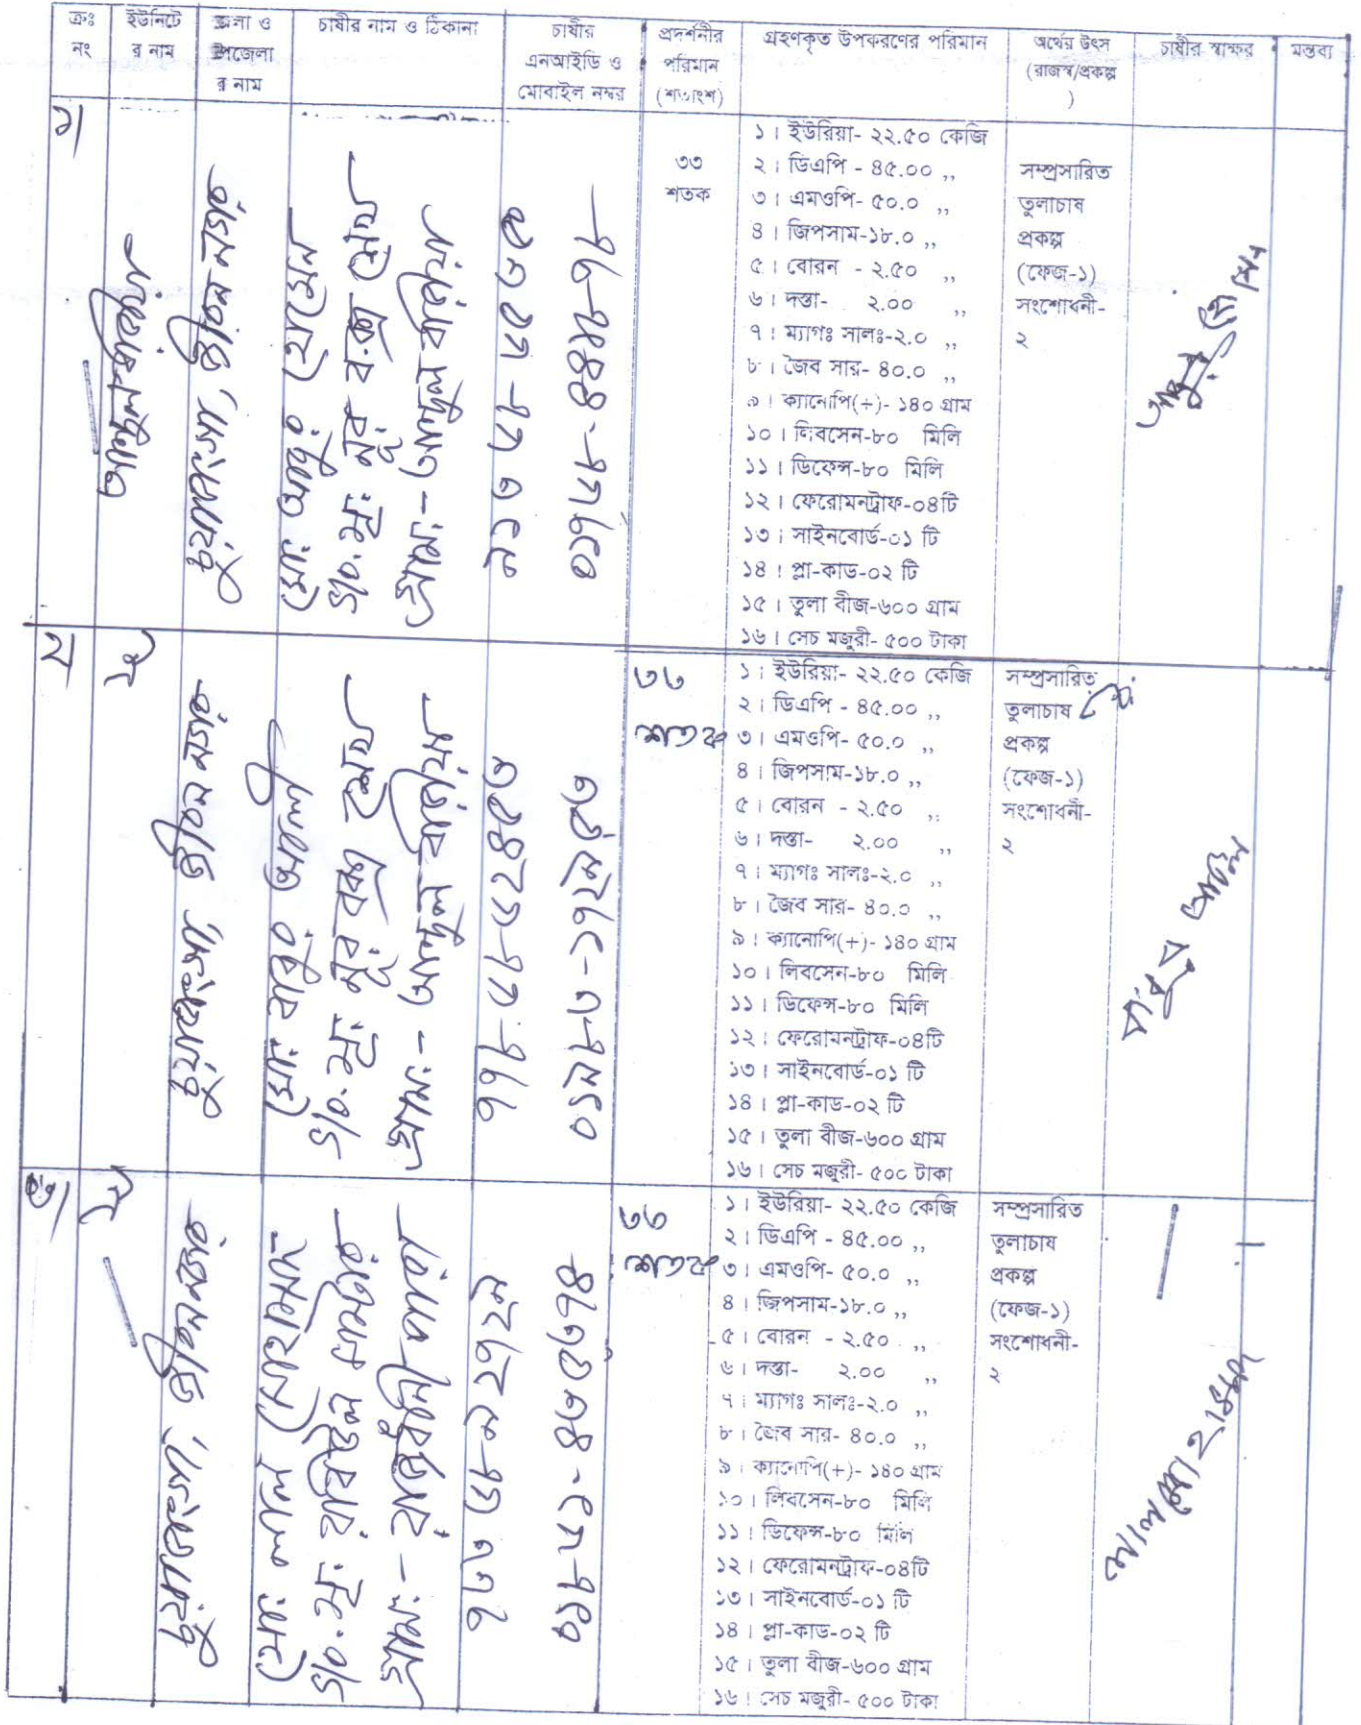 ক্রঃ নং
ইউনিটের নাম
জেলা ও উপজেলার নাম
চাষীর নাম ও ঠিকানা
চাষীর এনআইডি ও মোবাইল নম্বর
প্রদর্শনীর পরিমান (শতাংশ)
গ্রহণকৃত উপকরণের পরিমান
অর্থের উৎস (রাজস্ব/প্রকল্প)
চাষীর স্বাক্ষর
মন্তব্য
১/
আন্দুলবাড়ীয়া
চুয়াডাঙ্গা, জীবন নগর
নূর বক্স
গ্রাম:- আন্দুল বাড়ীয়া
৩৩
শতক
১। ইউরিয়া- ২২.৫০ কেজি
২। ডিএপি - ৪৫.০০ ,,
৩। এমওপি- ৫০.০ ,,
৪। জিপসাম-১৮.০ ,,
৫। বোরন - ২.৫০ ,,
৬। দস্তা- ২.০০ ,,
৭। ম্যাগঃ সালঃ-২.০ ,,
৮। জৈব সার- ৪০.০ ,,
৯। ক্যানোপি(+)- ১৪০ গ্রাম
১০। লিবসেন-৮০ মিলি
১১। ডিফেন্স-৮০ মিলি
১২। ফেরোমনট্রাফ-০৪টি
১৩। সাইনবোর্ড-০১ টি
১৪। প্লা-কাড-০২ টি
১৫। তুলা বীজ-৬০০ গ্রাম
১৬। সেচ মজুরী- ৫০০ টাকা
সম্প্রসারিত
তুলাচাষ
প্রকল্প
(ফেজ-১)
সংশোধনী-
২
২
চুয়াডাঙ্গা, জীবন নগর
মো: বাবুর আলী
নূর বক্স শেখ
গ্রাম:- আন্দুল বাড়ীয়া
৩৩
শতক
১। ইউরিয়া- ২২.৫০ কেজি
২। ডিএপি - ৪৫.০০ ,,
৩। এমওপি- ৫০.০ ,,
৪। জিপসাম-১৮.০ ,,
৫। বোরন - ২.৫০ ,,
৬। দস্তা- ২.০০ ,,
৭। ম্যাগঃ সালঃ-২.০ ,,
৮। জৈব সার- ৪০.০ ,,
৯। ক্যানোপি(+)- ১৪০ গ্রাম
১০। লিবসেন-৮০ মিলি
১১। ডিফেন্স-৮০ মিলি
১২। ফেরোমনট্রাফ-০৪টি
১৩। সাইনবোর্ড-০১ টি
১৪। প্লা-কাড-০২ টি
১৫। তুলা বীজ-৬০০ গ্রাম
১৬। সেচ মজুরী- ৫০০ টাকা
সম্প্রসারিত
তুলাচাষ
প্রকল্প
(ফেজ-১)
সংশোধনী-
২
৩/
চুয়াডাঙ্গা, জীবননগর
মো: লাল মোহাম্মদ
গ্রাম:-
৩৩
শতক
১। ইউরিয়া- ২২.৫০ কেজি
২। ডিএপি - ৪৫.০০ ,,
৩। এমওপি- ৫০.০ ,,
৪। জিপসাম-১৮.০ ,,
৫। বোরন - ২.৫০ ,,
৬। দস্তা- ২.০০ ,,
৭। ম্যাগঃ সালঃ-২.০ ,,
৮। জৈব সার- ৪০.০ ,,
৯। ক্যানোপি(+)- ১৪০ গ্রাম
১০। লিবসেন-৮০ মিলি
১১। ডিফেন্স-৮০ মিলি
১২। ফেরোমনট্রাফ-০৪টি
১৩। সাইনবোর্ড-০১ টি
১৪। প্লা-কাড-০২ টি
১৫। তুলা বীজ-৬০০ গ্রাম
১৬। সেচ মজুরী- ৫০০ টাকা
সম্প্রসারিত
তুলাচাষ
প্রকল্প
(ফেজ-১)
সংশোধনী-
২